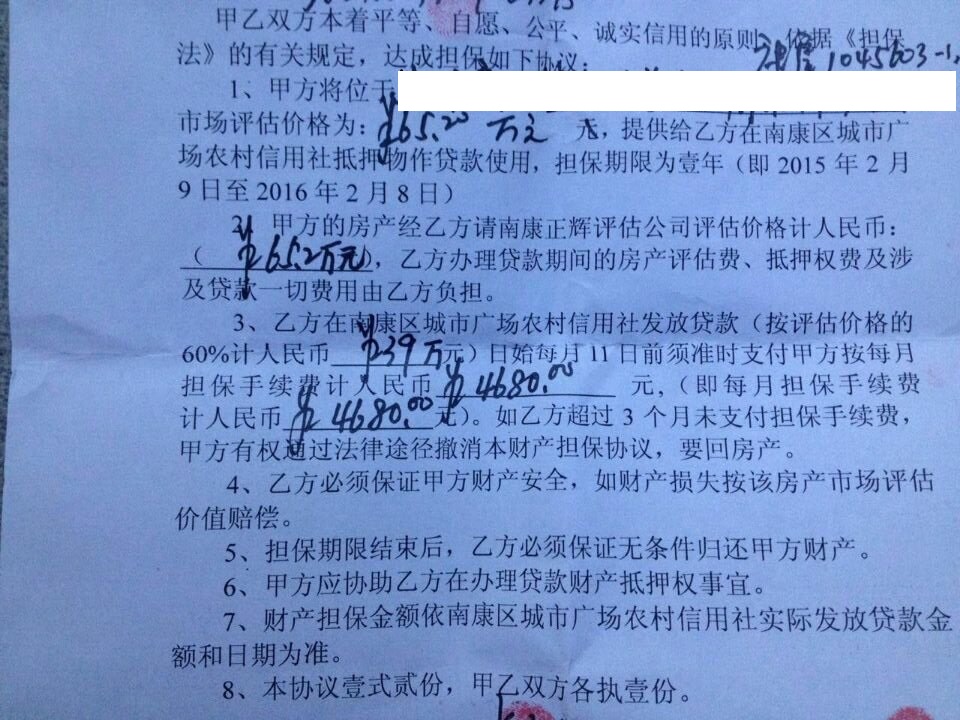 甲乙双方本着平等、自愿、公平、诚实信用的原则，依据《担保
法》的有关规定，达成担保如下协议：
1045603-1
1、甲方将位于
市场评估价格为：¥65.20 万元 元，提供给乙方在南康区城市广
场农村信用社抵押物作贷款使用，担保期限为壹年（即 2015 年 2 月
9 日至 2016 年 2 月 8 日）
2、甲方的房产经乙方请南康正辉评估公司评估价格计人民币：
（ ¥65.2万元 ），乙方办理贷款期间的房产评估费、抵押权费及涉
及贷款一切费用由乙方负担。
3、乙方在南康区城市广场农村信用社发放贷款（按评估价格的
60%计人民币 ¥39万元）日始每月 11 日前须准时支付甲方按每月
担保手续费计人民币 ¥4680.00 元，（即每月担保手续费
计人民币 ¥4680.00 元）。如乙方超过 3 个月未支付担保手续费，
甲方有权通过法律途径撤消本财产担保协议，要回房产。
4、乙方必须保证甲方财产安全，如财产损失按该房产市场评估
价值赔偿。
5、担保期限结束后，乙方必须保证无条件归还甲方财产。
6、甲方应协助乙方在办理贷款财产抵押权事宜。
7、财产担保金额依南康区城市广场农村信用社实际发放贷款金
额和日期为准。
8、本协议壹式贰份，甲乙双方各执壹份。